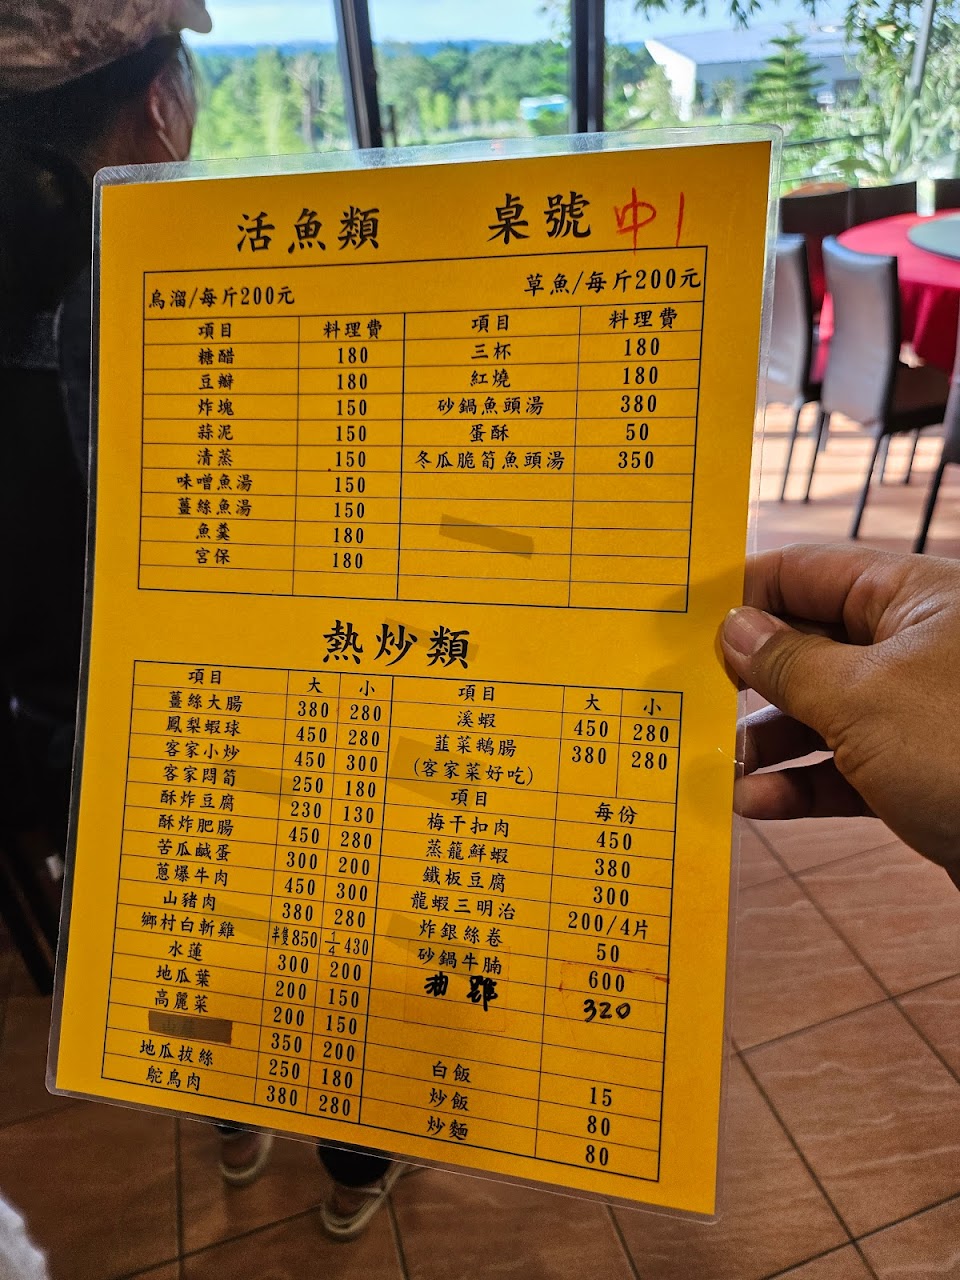 活魚類 桌號 中1
烏溜/每斤200元 草魚/每斤200元
項目 料理費 項目 料理費
糖醋 180 三杯 180
豆瓣 180 紅燒 180
炸塊 150 砂鍋魚頭湯 380
蒜泥 150 蛋酥 50
清蒸 150 冬瓜脆筍魚頭湯 350
味噌魚湯 150
薑絲魚湯 150
魚羹 180
宮保 180
熱炒類
項目 大 小 項目 大 小
薑絲大腸 380 280 溪蝦 450 280
鳳梨蝦球 450 280 韮菜鵝腸 380 280
客家小炒 450 300 (客家菜好吃)
客家悶筍 250 180 項目 每份
酥炸豆腐 230 130 梅干扣肉 450
酥炸肥腸 450 280 蒸籠鮮蝦 380
苦瓜鹹蛋 300 200 鐵板豆腐 300
蔥爆牛肉 450 300 龍蝦三明治 200/4片
山豬肉 380 280 炸銀絲卷 50
鄉村白斬雞 半隻850 1/4 430 砂鍋牛腩 600
水蓮 300 200 油雞 320
地瓜葉 200 150
高麗菜 200 150 白飯 15
350 200 炒飯 80
地瓜拔絲 250 180 炒麵 80
鴕鳥肉 380 280